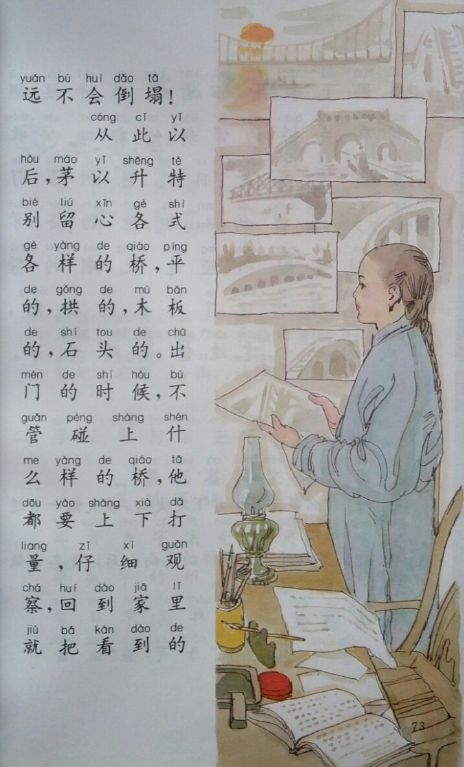 yuǎn bù huì dǎo tā
远不会倒塌！
cóng cǐ yǐ
从此以
hòu máo yǐ shēng tè
后，茅以升特
bié liú xīn gè shì
别留心各式
gè yàng de qiáo píng
各样的桥，平
de gǒng de mù bǎn
的，拱的，木板
de shí tou de chū
的，石头的。出
mén de shí hòu bù
门的时候，不
guǎn pèng shàng shén
管碰上什
me yàng de qiáo tā
么样的桥，他
dōu yào shàng xià dǎ
都要上下打
liang zǐ xì guān
量，仔细观
chá huí dào jiā lǐ
察，回到家里
jiù bǎ kàn dào de
就把看到的
73